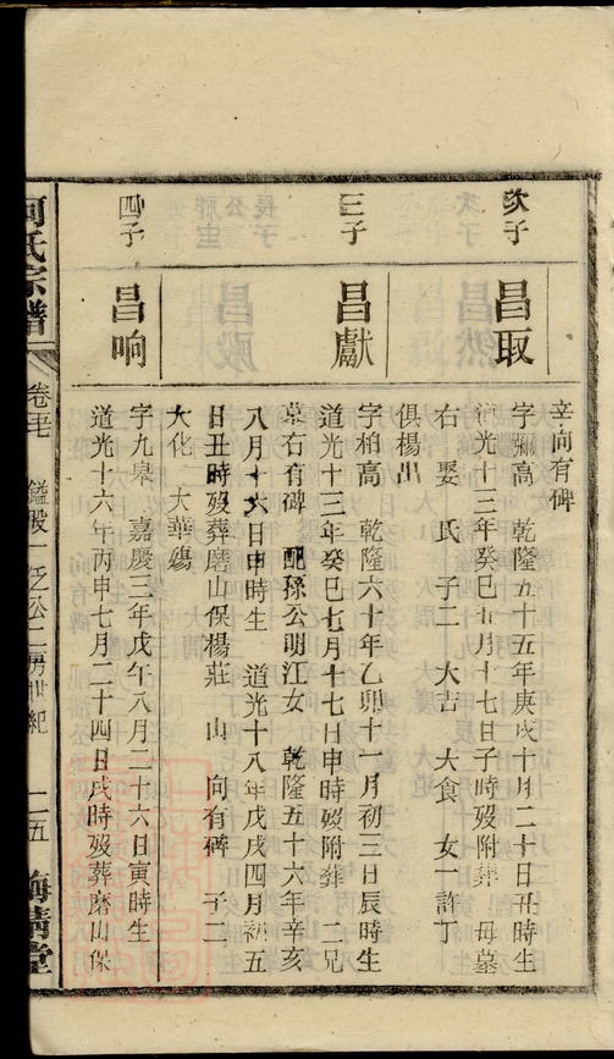 辛向有碑
次子
昌取
字彌高 乾隆五十五年庚戌十月二十日丑時生
道光十三年癸巳九月十七日子時歿附葬 母墓
右 娶 氏 子二 大吉 大食 女一許丁
俱楊出
三子
昌獻
字柏高 乾隆六十年乙卯十一月初三日辰時生
道光十三年癸巳七月十七日申時歿附葬 二兄
墓右有碑 配孫公明江女 乾隆五十六年辛亥
八月十六日申時生 道光十八年戊戌四月初五
日丑時歿葬磨山保楊莊 山 向有碑 子二
大化 大華殤
四子
昌响
字九皋 嘉慶三年戊午八月二十六日寅時生
道光十六年丙申七月二十四日戌時歿葬磨山保
何氏宗譜
卷 二五